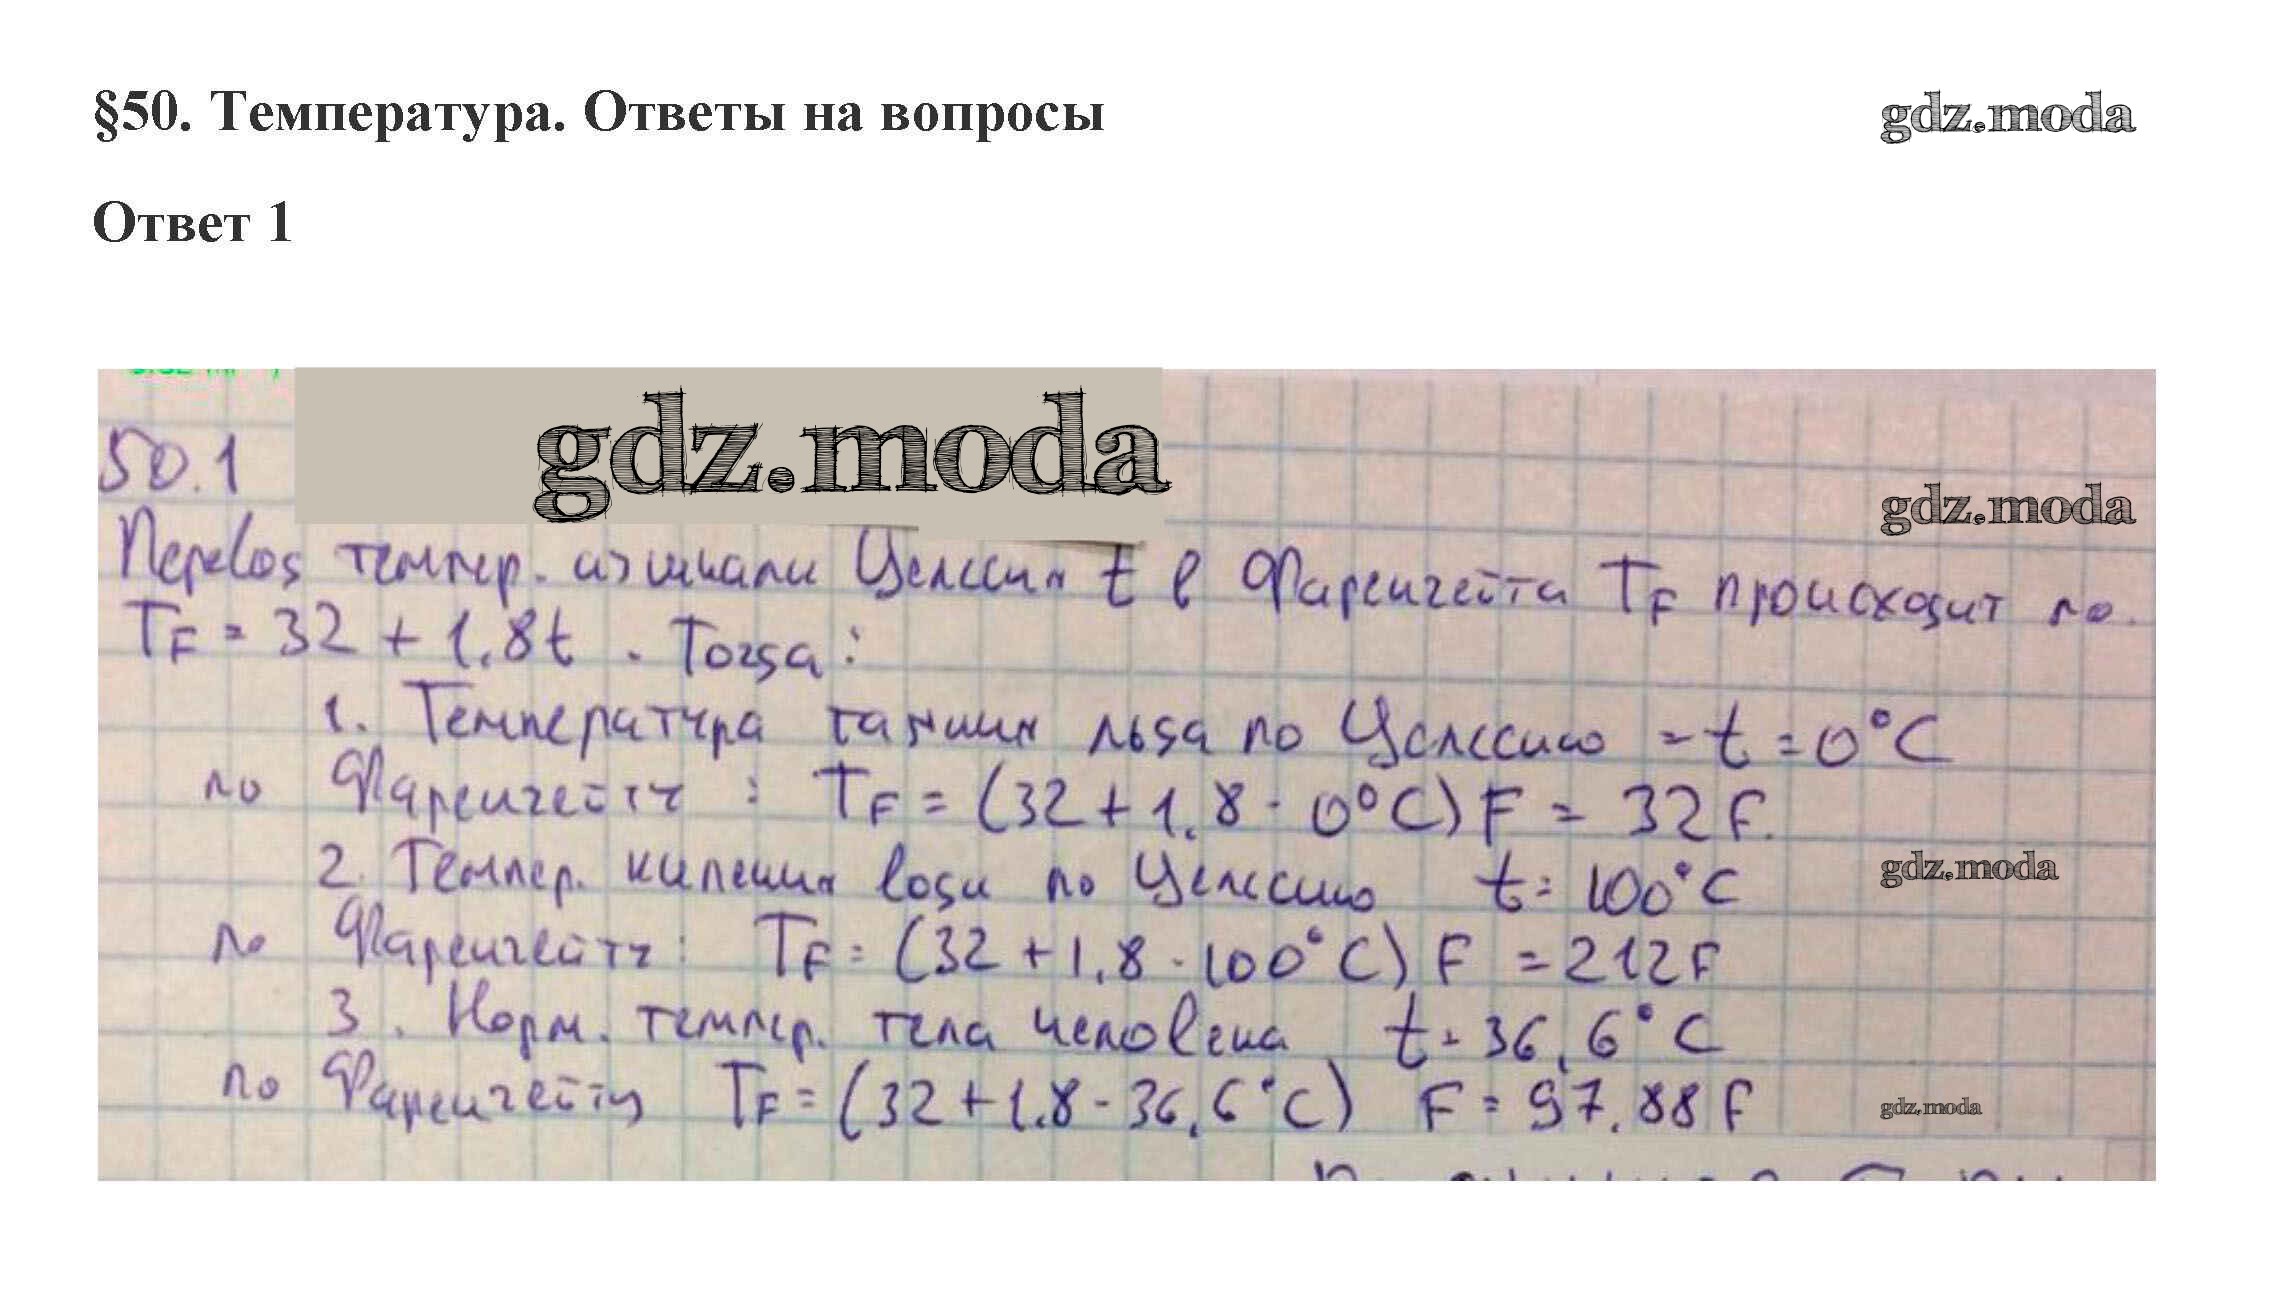 §50. Температура. Ответы на вопросы
gdz.moda
Ответ 1
gdz.moda
50.1
gdz.moda
Перевод темпер. из шкалы Цельсия t в Фаренгейта TF происходит по
TF = 32 + 1.8t. Тогда:
1. Температура таяния льда по Цельсию - t = 0°C
по Фаренгейту: TF = (32 + 1.8 · 0°C) F = 32 F.
2. Темпер. кипения воды по Цельсию t = 100°C
gdz.moda
по Фаренгейту: TF = (32 + 1.8 · 100°C) F = 212 F
3. Норм. темпер. тела человека t = 36,6°C
по Фаренгейту TF = (32 + 1.8 · 36,6°C) F = 97.88 F
gdz.moda